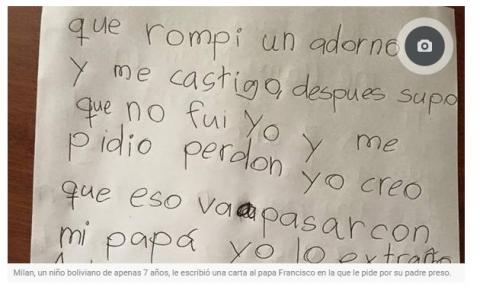 que rompi un adorno
y me castigo, despues supo
que no fui yo y me
pidio perdon yo creo
que eso va pasar con
mi papá yo lo extraño
Milan, un niño boliviano de apenas 7 años, le escribió una carta al papa Francisco en la que le pide por su padre preso.